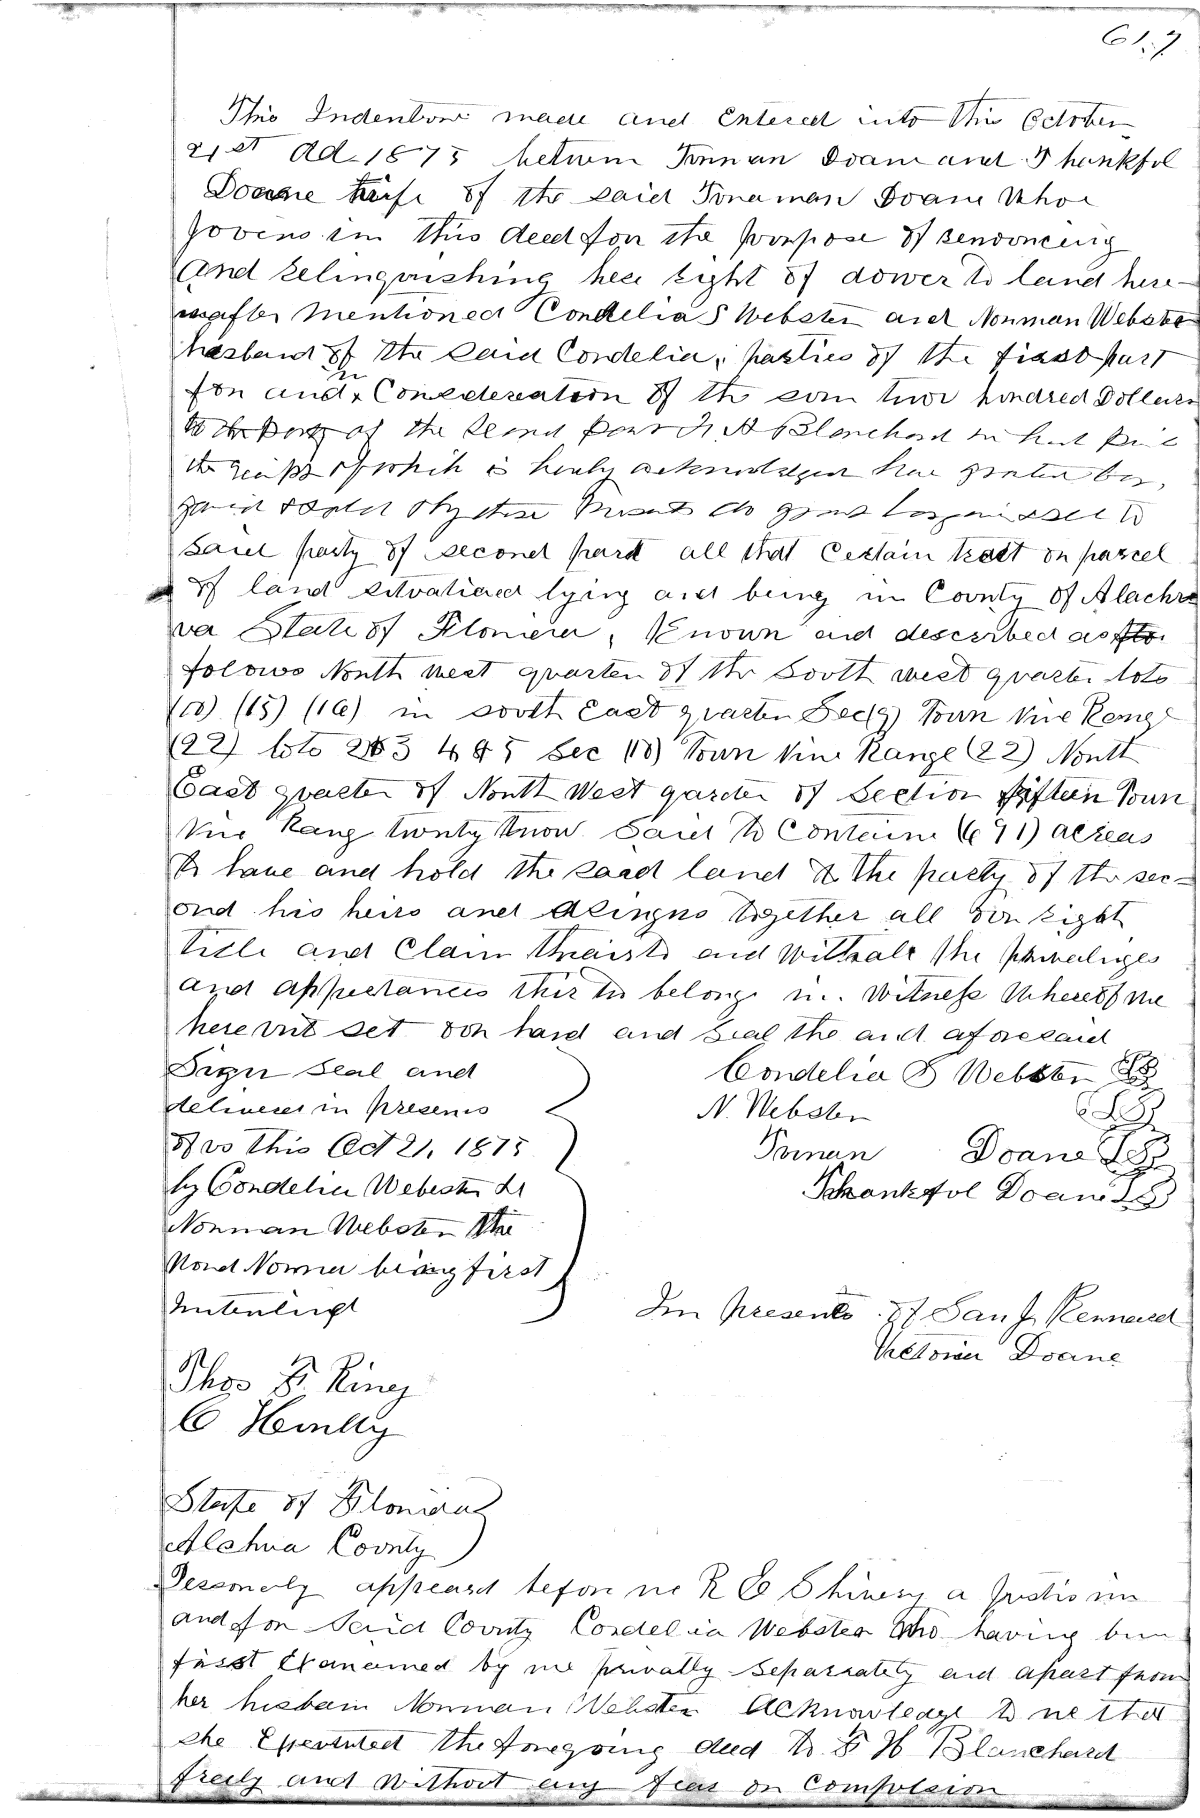 617
This Indenture made and Entered into this October
21st Ad. 1875 between Truman Doane and Thankfol
Doane wife of the said Trueman Doane Whoe
Joyens in this deed for the pourpose of renouncing
and relinquishing her right of dower to land here-
inafter mentioned Cordelia S Webster and Norman Webster
husband of the said Cordelia, parties of the first part
for and in Consideration of the som two hondred Dollars
of the second part F. H Blanchard in hand paid
the receipt of which is hereby acknowledged have granted bar,
gained & sold & by these Presents do grant bargain & sell to
said party of second part all that Certain tract or parcel
of land situatiaed lying and being in County of Alachu
ua State of Florida, Known and described as
folows North west quarter of the South west quarter lots
(10) (15) (16) in south East quarter Sec (9) Town Nine Range
(22) lots 2 & 3 4 & 5 Sec (10) Town Nine Range (22) North
East quarter of North West qarter of Section fifteen Town
Nine Rang twenty twoo Said to Containe (691) acreas
To have and hold the said land to the party of the sec-
ond his heirs and asings together all our right
title and Claim thairto and withale the privaliges
and appertances thirto belong in. Witness Whereof we
here unt set our hand and seal the and aforesaid
Sign seal and
delivered in presents
of us this Oct 21, 1875
by Cordelia Webester &
Norman Webster the
Word Norman being first
Interlined
Cordelia S Webster LS
N. Webster LS
Truman Doane LS
Thankfol Doane LS
In presents of Sam J. Kennard
Victoria Doane
Thos F. King
C
State of Florida
Alchua County
Personerly appeard before me R E Shivery a Justis in
and for Said County Cordelia Webster who having bun
first Exanamed by me privatly separrately and apart from
her husbain Norman Webster Acknowledge to me that
she Exersuted the foregoing deed to F H Blanchard
freely and without any fear or Compulsion